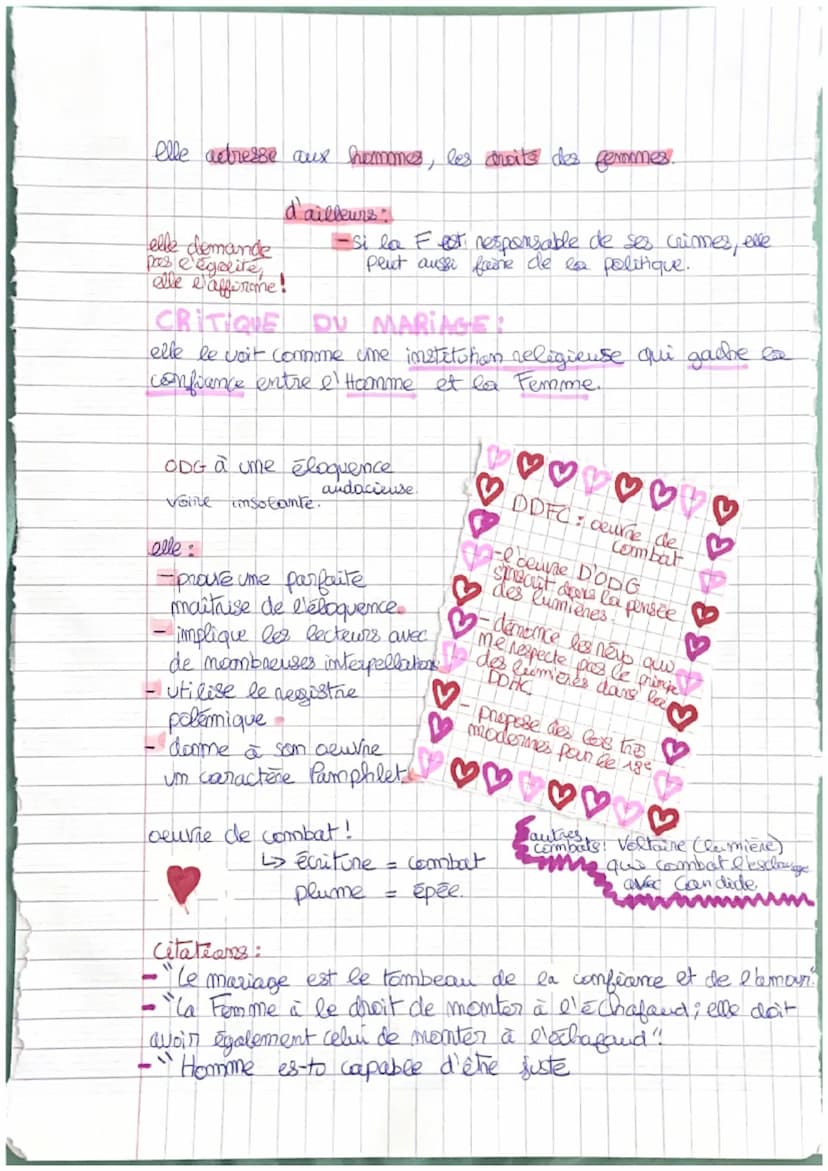 elle adresse aux hommes, les droits des femmes.
d'ailleurs:
- si la F est responsable de ses crimes, elle
peut aussi faire de la politique.
elle demande
pas l'égalité,
elle l'affirme!
CRITIQUE DU MARIAGE:
elle le voit comme une instituhon religieuse qui gache la
confiance entre l'Homme et la Femme.
ODG à une éloquence
audacieuse
voire insolante.
elle:
- prouve une parfaite
maîtrise de l'éloquence.
- implique les lecteurs avec
de nombreuses interpellations
- utilise le registre
polémique.
- donne à son oeuvre
un caractère Pamphlet.
DDFC: oeuvre de
combat
- l'oeuvre D'ODG
s'inscrit dans la pensée
des lumières.
- dénonce les rév qui
ne respecte pas le principe
des lumières dans la
DDHC
- propose des lois très
modernes pour le 18e
oeuvre de combat!
↳ écriture = combat
plume = épée.
autres
combats: Voltaire (lumière)
qui combat l'esclavage
avec Candide
Citations:
- "Le mariage est le tombeau de la confiance et de l'amour".
- "La Femme à le droit de monter à l'échafaud; elle doit
avoir également celui de monter à l'échafaud".
- "Homme es-to capable d'être juste